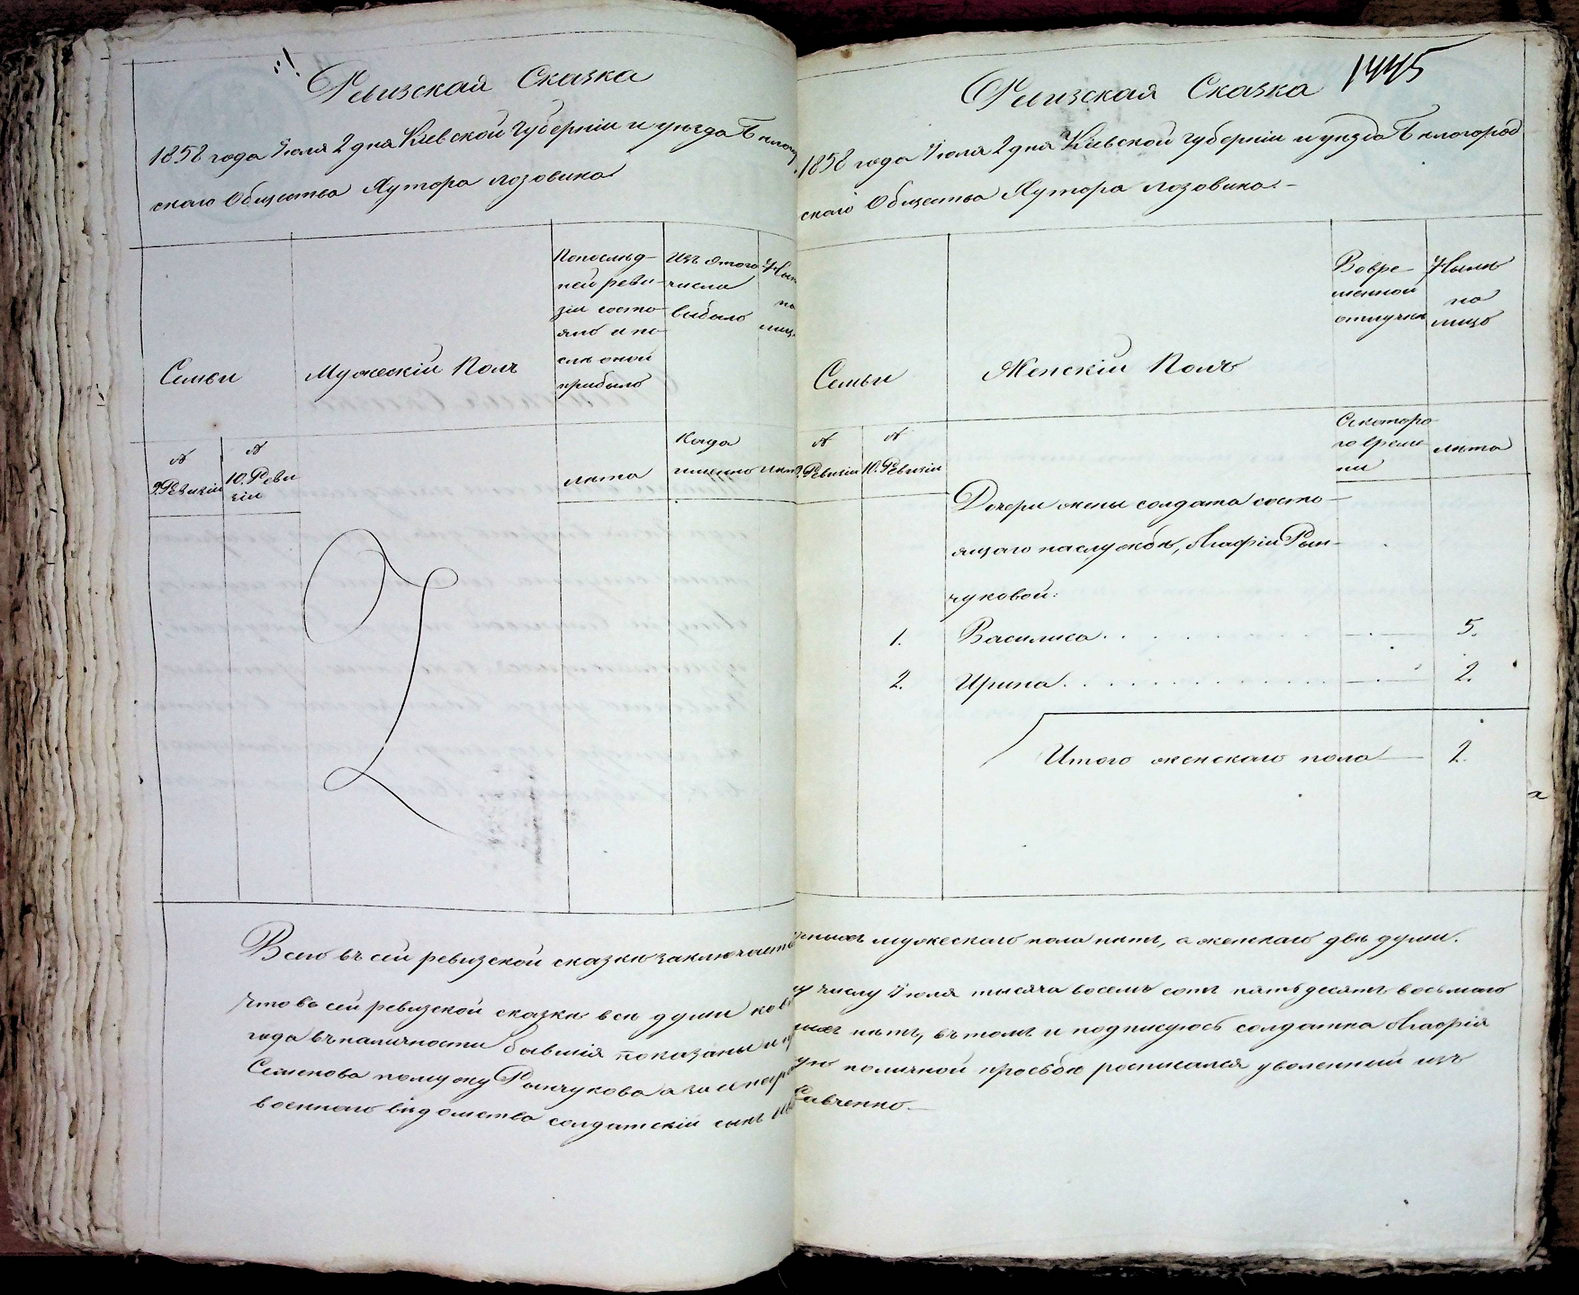 Ревизская Сказка
1858 года Іюля 2 дня Кіевской губерніи и уѣзда Бѣлогород
скаго Общества Хутора Лозовика
Семьи
Мужескій Полъ
Попослѣд-
ней реви-
зіи состо-
яло и по-
слѣ оной
прибыло
Изъ этого
числа
выбыло
Нынѣ
на
лицо
№
9. Ревизіи
№
10. Реви
зіи
лѣта
Когда
именно
лѣта
Всего въ сей ревизской сказкѣ заключается
Что въ сей ревизской сказкѣ всѣ души ко
года въ наличности бывшія показаны и
Семенова по мужу Рынчукова а за неграмот
военнаго вѣдомства солдатскій сынъ
1445
Ревизская Сказка
1858 года Іюля 2 дня Кіевской губерніи и уѣзда Бѣлогород
скаго Общества Хутора Лозовика.-
Семьи
Женскій Полъ
Вовре-
менной
отлучкѣ
Нынѣ
на
лицо
№
9. Ревизіи
№
10. Ревизіи
Скоторо
го време
ни
лѣта
Дочери жены солдата состо-
ящаго на службѣ, Агафіи Рын-
чуковой:
1. Василиса . . . — 5.
2. Ирина . . . — 2.
Итого женскаго пола — 2.
мужескаго пола нѣтъ, а женскаго двѣ души.
числу Іюля тысяча восемь сотъ пятьдесятъ восьмаго
нѣтъ, въ томъ и подписуюсь солдатка Агафія
по личной просьбою росписался уволенный изъ
Савченко.-